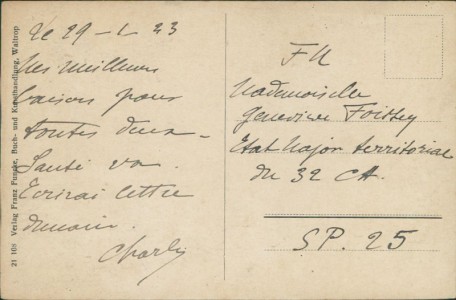 Le 29-1-23
Mes meilleurs
baisers pour
toutes deux -
Santé va.
Ecrirai lettre
demain.
Charly
FM
Mademoiselle
Geneviève Foissey
Etat Major territorial
du 32 CA.
SP. 25
21 109 Verlag Franz Funcke, Buch- und Kunsthandlung, Waltrop